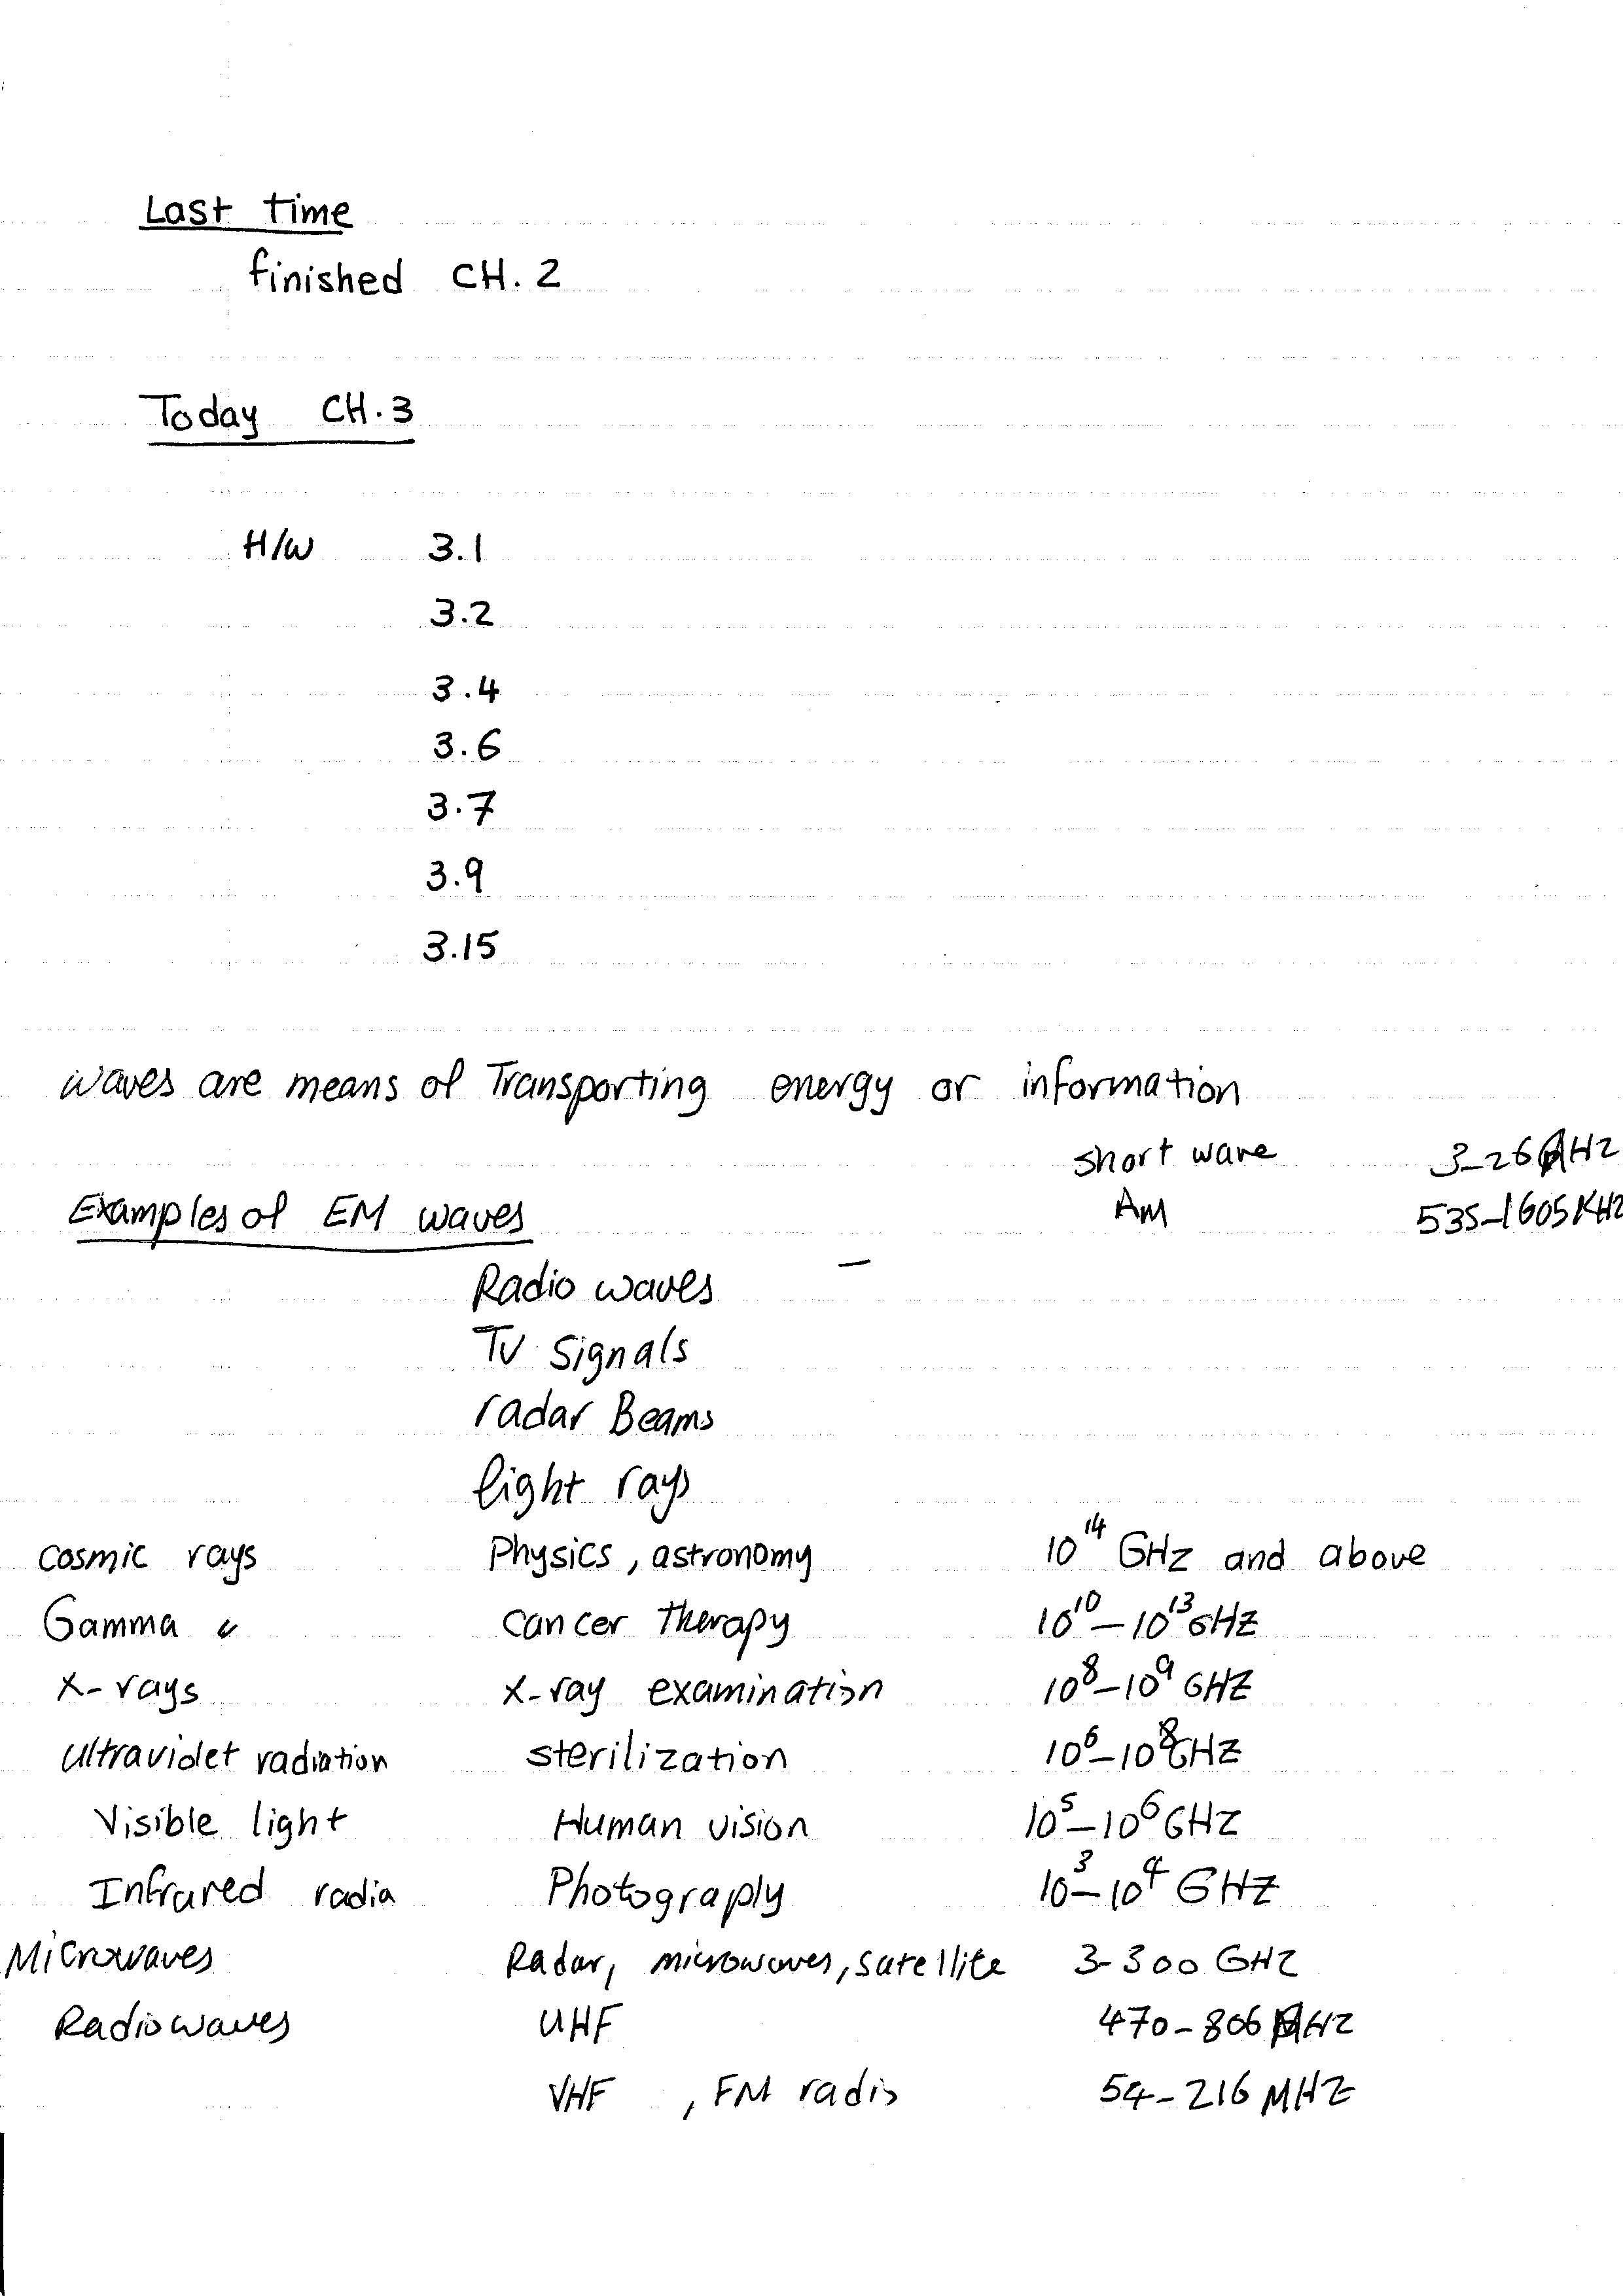 Last time
finished CH. 2
Today CH.3
H/W 3.1
3.2
3.4
3.6
3.7
3.9
3.15
waves are means of Transporting energy or information
short wave 3-26 MHz
Examples of EM waves AM 535-1605 KHz
Radio waves –
TV Signals
radar Beams
light rays
Cosmic rays Physics, astronomy 10^14 GHz and above
Gamma " Cancer Therapy 10^10-10^13 GHz
X-rays X-ray examination 10^8-10^9 GHz
Ultraviolet radiation sterilization 10^6-10^8 GHz
Visible light Human vision 10^5-10^6 GHz
Infrared radia Photography 10^3-10^4 GHz
Microwaves Radar, microwaves, satellite 3-300 GHz
Radiowaves UHF 470-806 MHz
VHF , FM radio 54-216 MHz